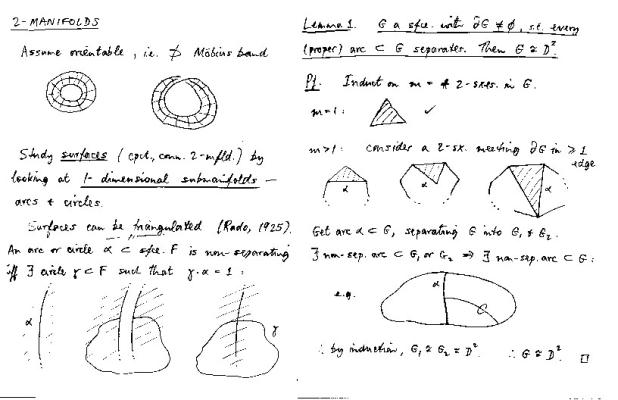 2-MANIFOLDS
Assume orientable, i.e. ⊅ Möbius band
Study surfaces (cpct., conn. 2-mfld.) by
looking at 1-dimensional submanifolds —
arcs & circles.
Surfaces can be triangulated (Rado, 1925).
An arc or circle α ⊂ sfce. F is non-separating
iff ∃ circle γ ⊂ F such that γ.α = 1:
α
γ
Lemma 1. G a sfce. with ∂G ≠ ∅, s.t. every
(proper) arc ⊂ G separates. Then G ≅ D²
Pf. Induct on m = # 2-sxes. in G.
m=1: ✓
m>1: consider a 2-sx. meeting ∂G in ≥ 1
edge
α
α
α
Get arc α ⊂ G, separating G into G₁ & G₂.
∃ non-sep. arc ⊂ G₁ or G₂ ⇒ ∃ non-sep. arc ⊂ G:
e.g.
α
∴ by induction, G₁ ≅ G₂ ≅ D² ∴ G ≅ D². □